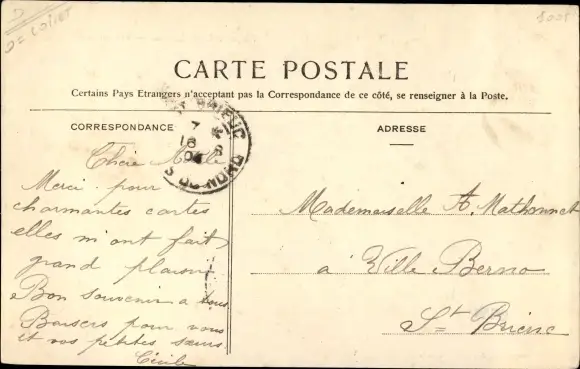 CARTE POSTALE
Certains Pays Etrangers n'acceptant pas la Correspondance de ce côté, se renseigner à la Poste.
CORRESPONDANCE
ADRESSE
ST BRIEUC
7
18
8
DU NORD
Chère
Merci pour
charmantes cartes
elles m'ont fait
grand plaisir
Bon souvenir a tous
Baisers pour vous
et vos petites sœurs
Cécile
Mademoiselle A. Mathonnet
a Ville Berno
St Brieuc